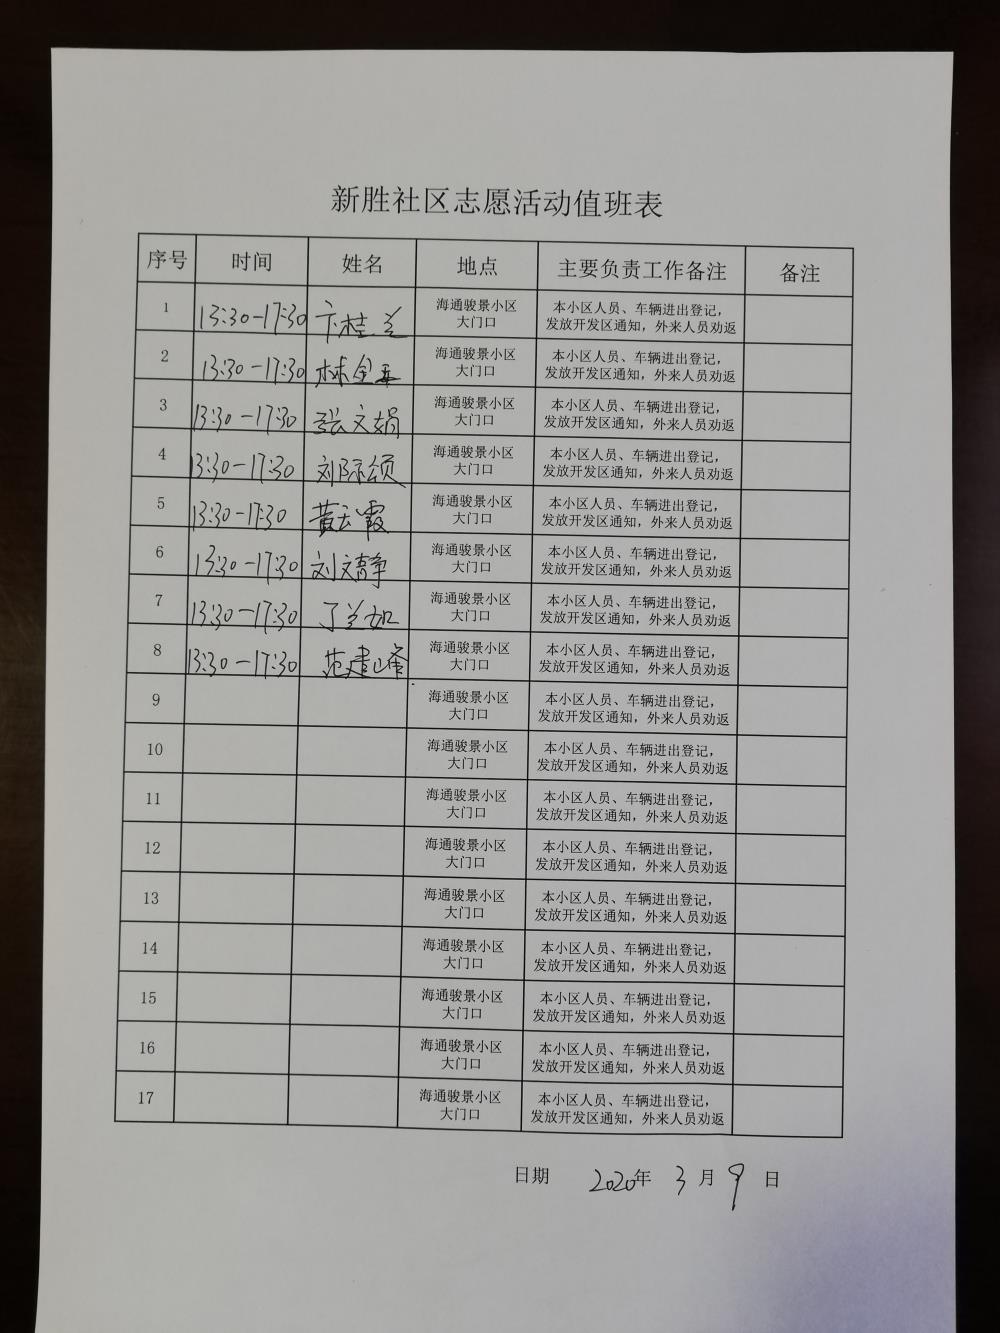 新胜社区志愿活动值班表
序号 时间 姓名 地点 主要负责工作备注 备注
1 13:30-17:30 卞桂兰 海通骏景小区 本小区人员、车辆进出登记，
大门口 发放开发区通知，外来人员劝返
2 13:30-17:30 林金 海通骏景小区 本小区人员、车辆进出登记，
大门口 发放开发区通知，外来人员劝返
3 13:30-17:30 张文娟 海通骏景小区 本小区人员、车辆进出登记，
大门口 发放开发区通知，外来人员劝返
4 13:30-17:30 刘际颂 海通骏景小区 本小区人员、车辆进出登记，
大门口 发放开发区通知，外来人员劝返
5 13:30-17:30 黄云霞 海通骏景小区 本小区人员、车辆进出登记，
大门口 发放开发区通知，外来人员劝返
6 13:30-17:30 刘文静 海通骏景小区 本小区人员、车辆进出登记，
大门口 发放开发区通知，外来人员劝返
7 13:30-17:30 丁兰如 海通骏景小区 本小区人员、车辆进出登记，
大门口 发放开发区通知，外来人员劝返
8 13:30-17:30 范建峰 海通骏景小区 本小区人员、车辆进出登记，
大门口 发放开发区通知，外来人员劝返
9 海通骏景小区 本小区人员、车辆进出登记，
大门口 发放开发区通知，外来人员劝返
10 海通骏景小区 本小区人员、车辆进出登记，
大门口 发放开发区通知，外来人员劝返
11 海通骏景小区 本小区人员、车辆进出登记，
大门口 发放开发区通知，外来人员劝返
12 海通骏景小区 本小区人员、车辆进出登记，
大门口 发放开发区通知，外来人员劝返
13 海通骏景小区 本小区人员、车辆进出登记，
大门口 发放开发区通知，外来人员劝返
14 海通骏景小区 本小区人员、车辆进出登记，
大门口 发放开发区通知，外来人员劝返
15 海通骏景小区 本小区人员、车辆进出登记，
大门口 发放开发区通知，外来人员劝返
16 海通骏景小区 本小区人员、车辆进出登记，
大门口 发放开发区通知，外来人员劝返
17 海通骏景小区 本小区人员、车辆进出登记，
大门口 发放开发区通知，外来人员劝返
日期 2020年 3 月 9 日